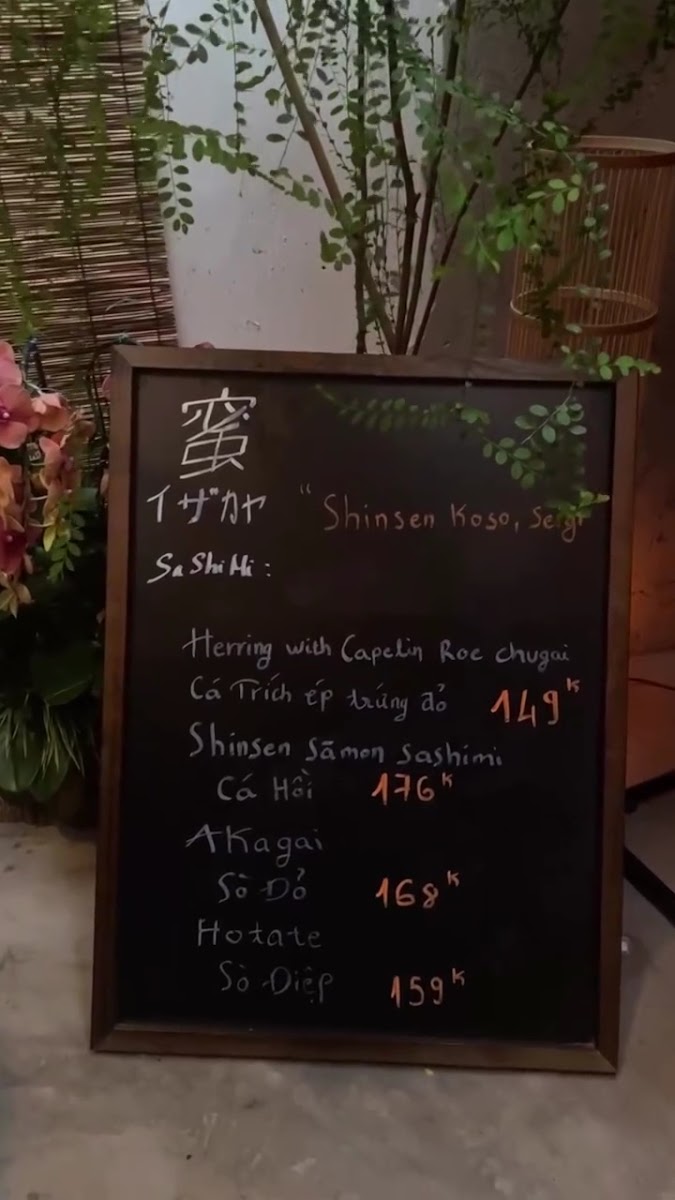 蜜
イザカヤ " Shinsen Koso,
SaShiMi :
Herring with Capelin Roe chugai
Cá Trích ép trứng đỏ 149K
Shinsen Sāmon Sashimi
Cá Hồi 176K
AKagai
Sò Đỏ 168K
Hotate
Sò Điệp 159K